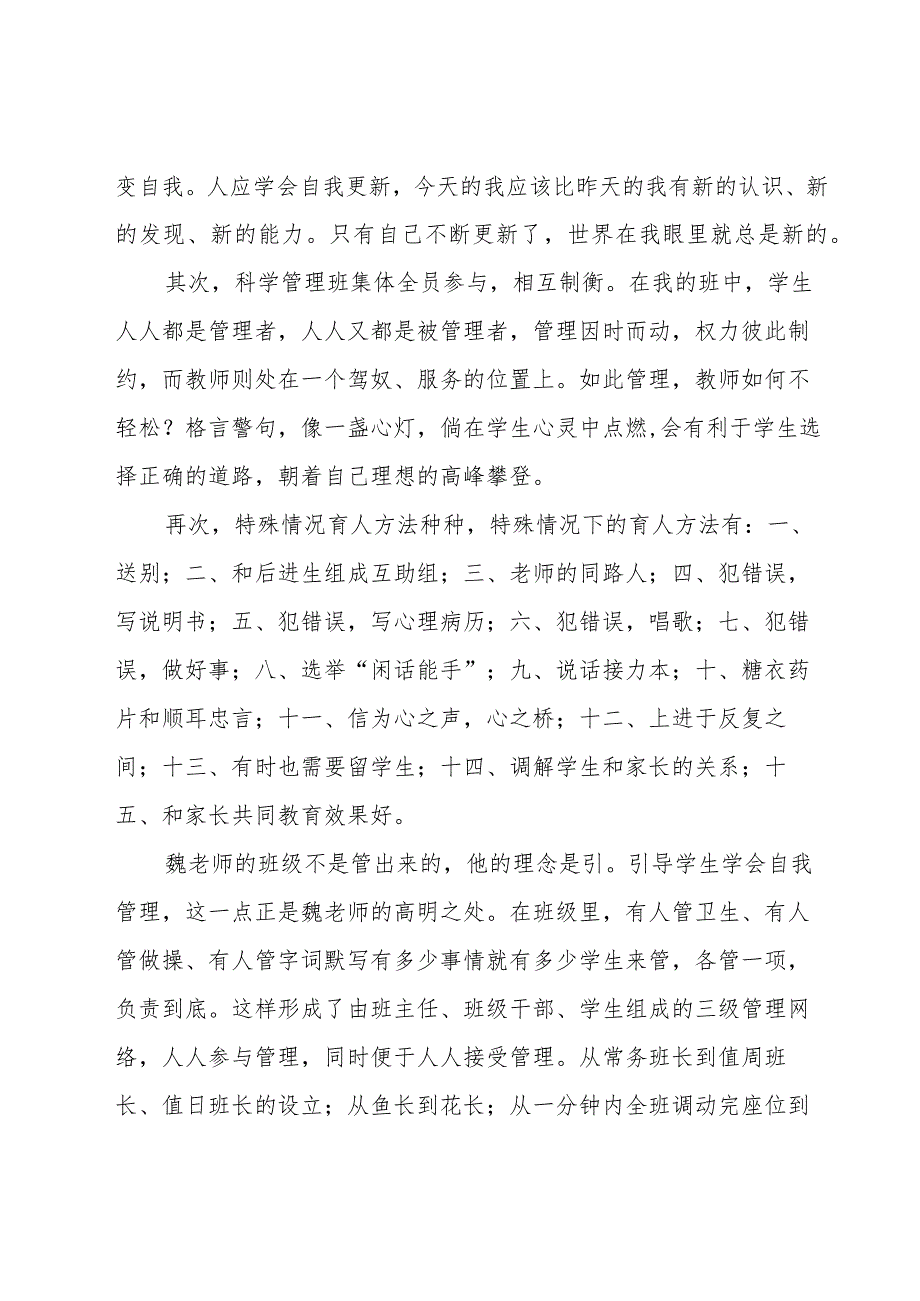 变自我。人应学会自我更新，今天的我应该比昨天的我有新的认识、新
的发现、新的能力。只有自己不断更新了，世界在我眼里就总是新的。
其次，科学管理班集体全员参与，相互制衡。在我的班中，学生
人人都是管理者，人人又都是被管理者，管理因时而动，权力彼此制
约，而教师则处在一个驾奴、服务的位置上。如此管理，教师如何不
轻松？格言警句，像一盏心灯，倘在学生心灵中点燃,会有利于学生选
择正确的道路，朝着自己理想的高峰攀登。
再次，特殊情况育人方法种种，特殊情况下的育人方法有：一、
送别；二、和后进生组成互助组；三、老师的同路人；四、犯错误，
写说明书；五、犯错误，写心理病历；六、犯错误，唱歌；七、犯错
误，做好事；八、选举“闲话能手”；九、说话接力本；十、糖衣药
片和顺耳忠言；十一、信为心之声，心之桥；十二、上进于反复之
间；十三、有时也需要留学生；十四、调解学生和家长的关系；十
五、和家长共同教育效果好。
魏老师的班级不是管出来的，他的理念是引。引导学生学会自我
管理，这一点正是魏老师的高明之处。在班级里，有人管卫生、有人
管做操、有人管字词默写有多少事情就有多少学生来管，各管一项，
负责到底。这样形成了由班主任、班级干部、学生组成的三级管理网
络，人人参与管理，同时便于人人接受管理。从常务班长到值周班
长、值日班长的设立；从鱼长到花长；从一分钟内全班调动完座位到